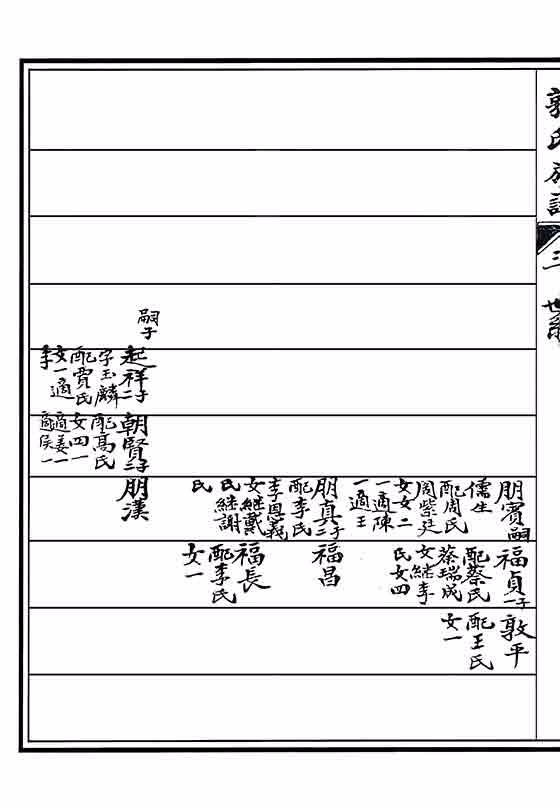 郭氏族譜 三 世系
嗣子
起祥二子
字玉麟
配賈氏
女一適
李
朝賢三子
配高氏
女四一
適姜一
適侯一
朋賓嗣
儒生
配周氏
周紫廷
女女二
一適陳
一適王
朋真二子
配李氏
李恩義
女継戴
氏継謝
氏
朋漢
福貞一子
配蔡氏
蔡瑞成
女継李
氏女四
福昌
福長
配李氏
女一
敦平
配王氏
女一